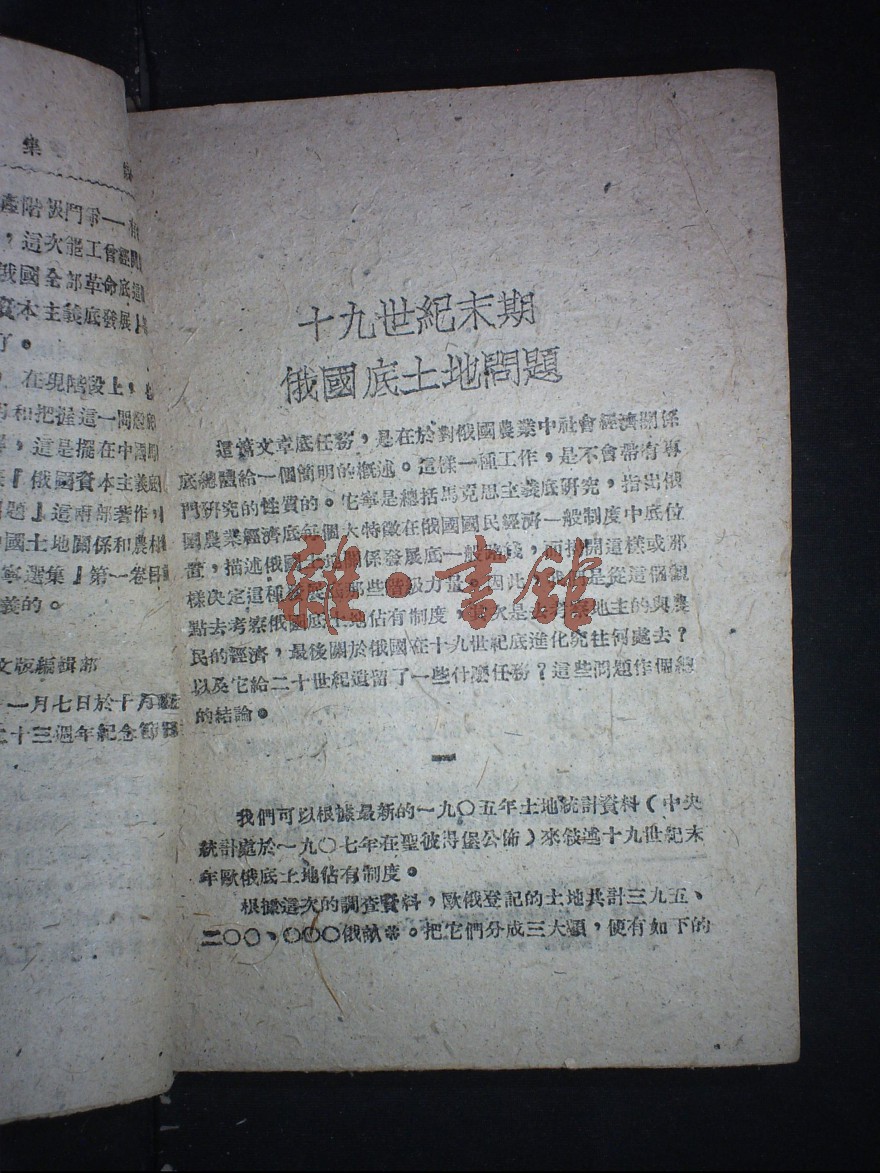 集
產階級鬥爭—
，這次罷工曾經
俄國全部革命底
資本主義底發展
了。
，在現階段上，
和把握這一問題
，這是擺在中國
『俄國資本主義底
題』這兩部著作，
國土地關係和農
寧選集』第一卷目
義的。
文版編輯部
一月七日於十月
十三週年紀念節
十九世紀末期
俄國底土地問題
這篇文章底任務，是在於對俄國農業中社會經濟關係
底總體給一個簡明的概述。這樣一種工作，是不會帶有專
門研究的性質的。它寧是總括馬克思主義底研究，指出俄
國農業經濟底每個大特徵在俄國國民經濟一般制度中底位
置，描述俄國土地關係發展底一般路綫，而揭開這樣或那
樣決定這種發展底那些階級力量。因此，我們是從這個觀
點去考察俄國底土地佔有制度，其次是去考察地主的與農
民的經濟，最後關於俄國在十九世紀底進化究往何處去？
以及它給二十世紀遺留了一些什麼任務？這些問題作個總
的結論。
一
我們可以根據最新的一九〇五年土地統計資料（中央
統計處於一九〇七年在聖彼得堡公佈）來敍述十九世紀末
年歐俄底土地佔有制度。
根據這次的調查資料，歐俄登記的土地共計三九五、
二〇〇、〇〇〇俄畝※。把它們分成三大類，便有如下的
雜·書館